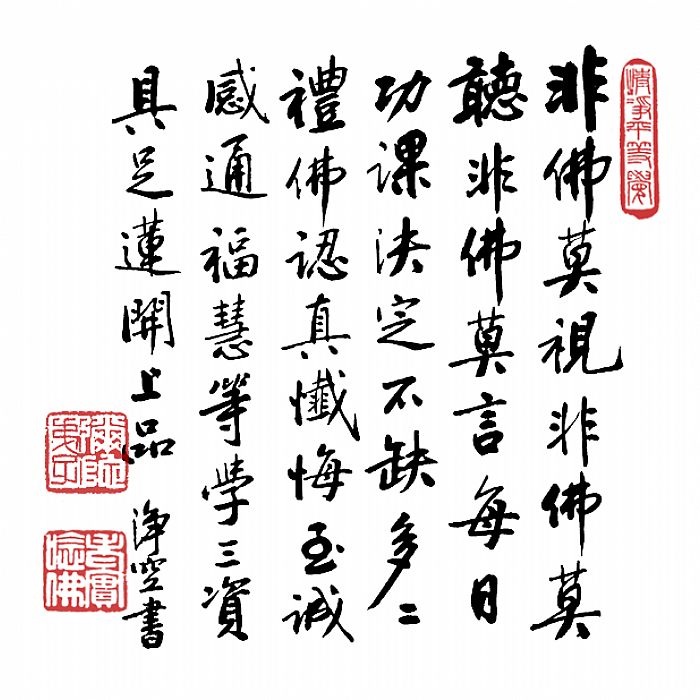 清淨平等覺
非佛莫視非佛莫
聽非佛莫言每日
功課決定不缺多〻
禮佛認真懺悔至誠
感通福慧等學三資
具足蓮開上品
淨空書
老實念佛